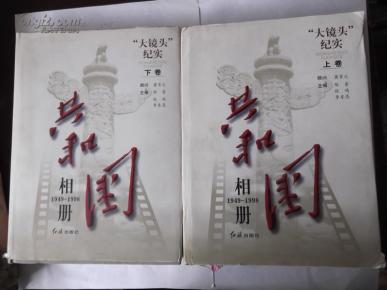 “大镜头”
纪实
下卷
顾问
主编
共和国
相册
1949-1998
红旗出版社
“大镜头”
纪实
上卷
顾问
主编
共和国
相册
1949-1998
红旗出版社